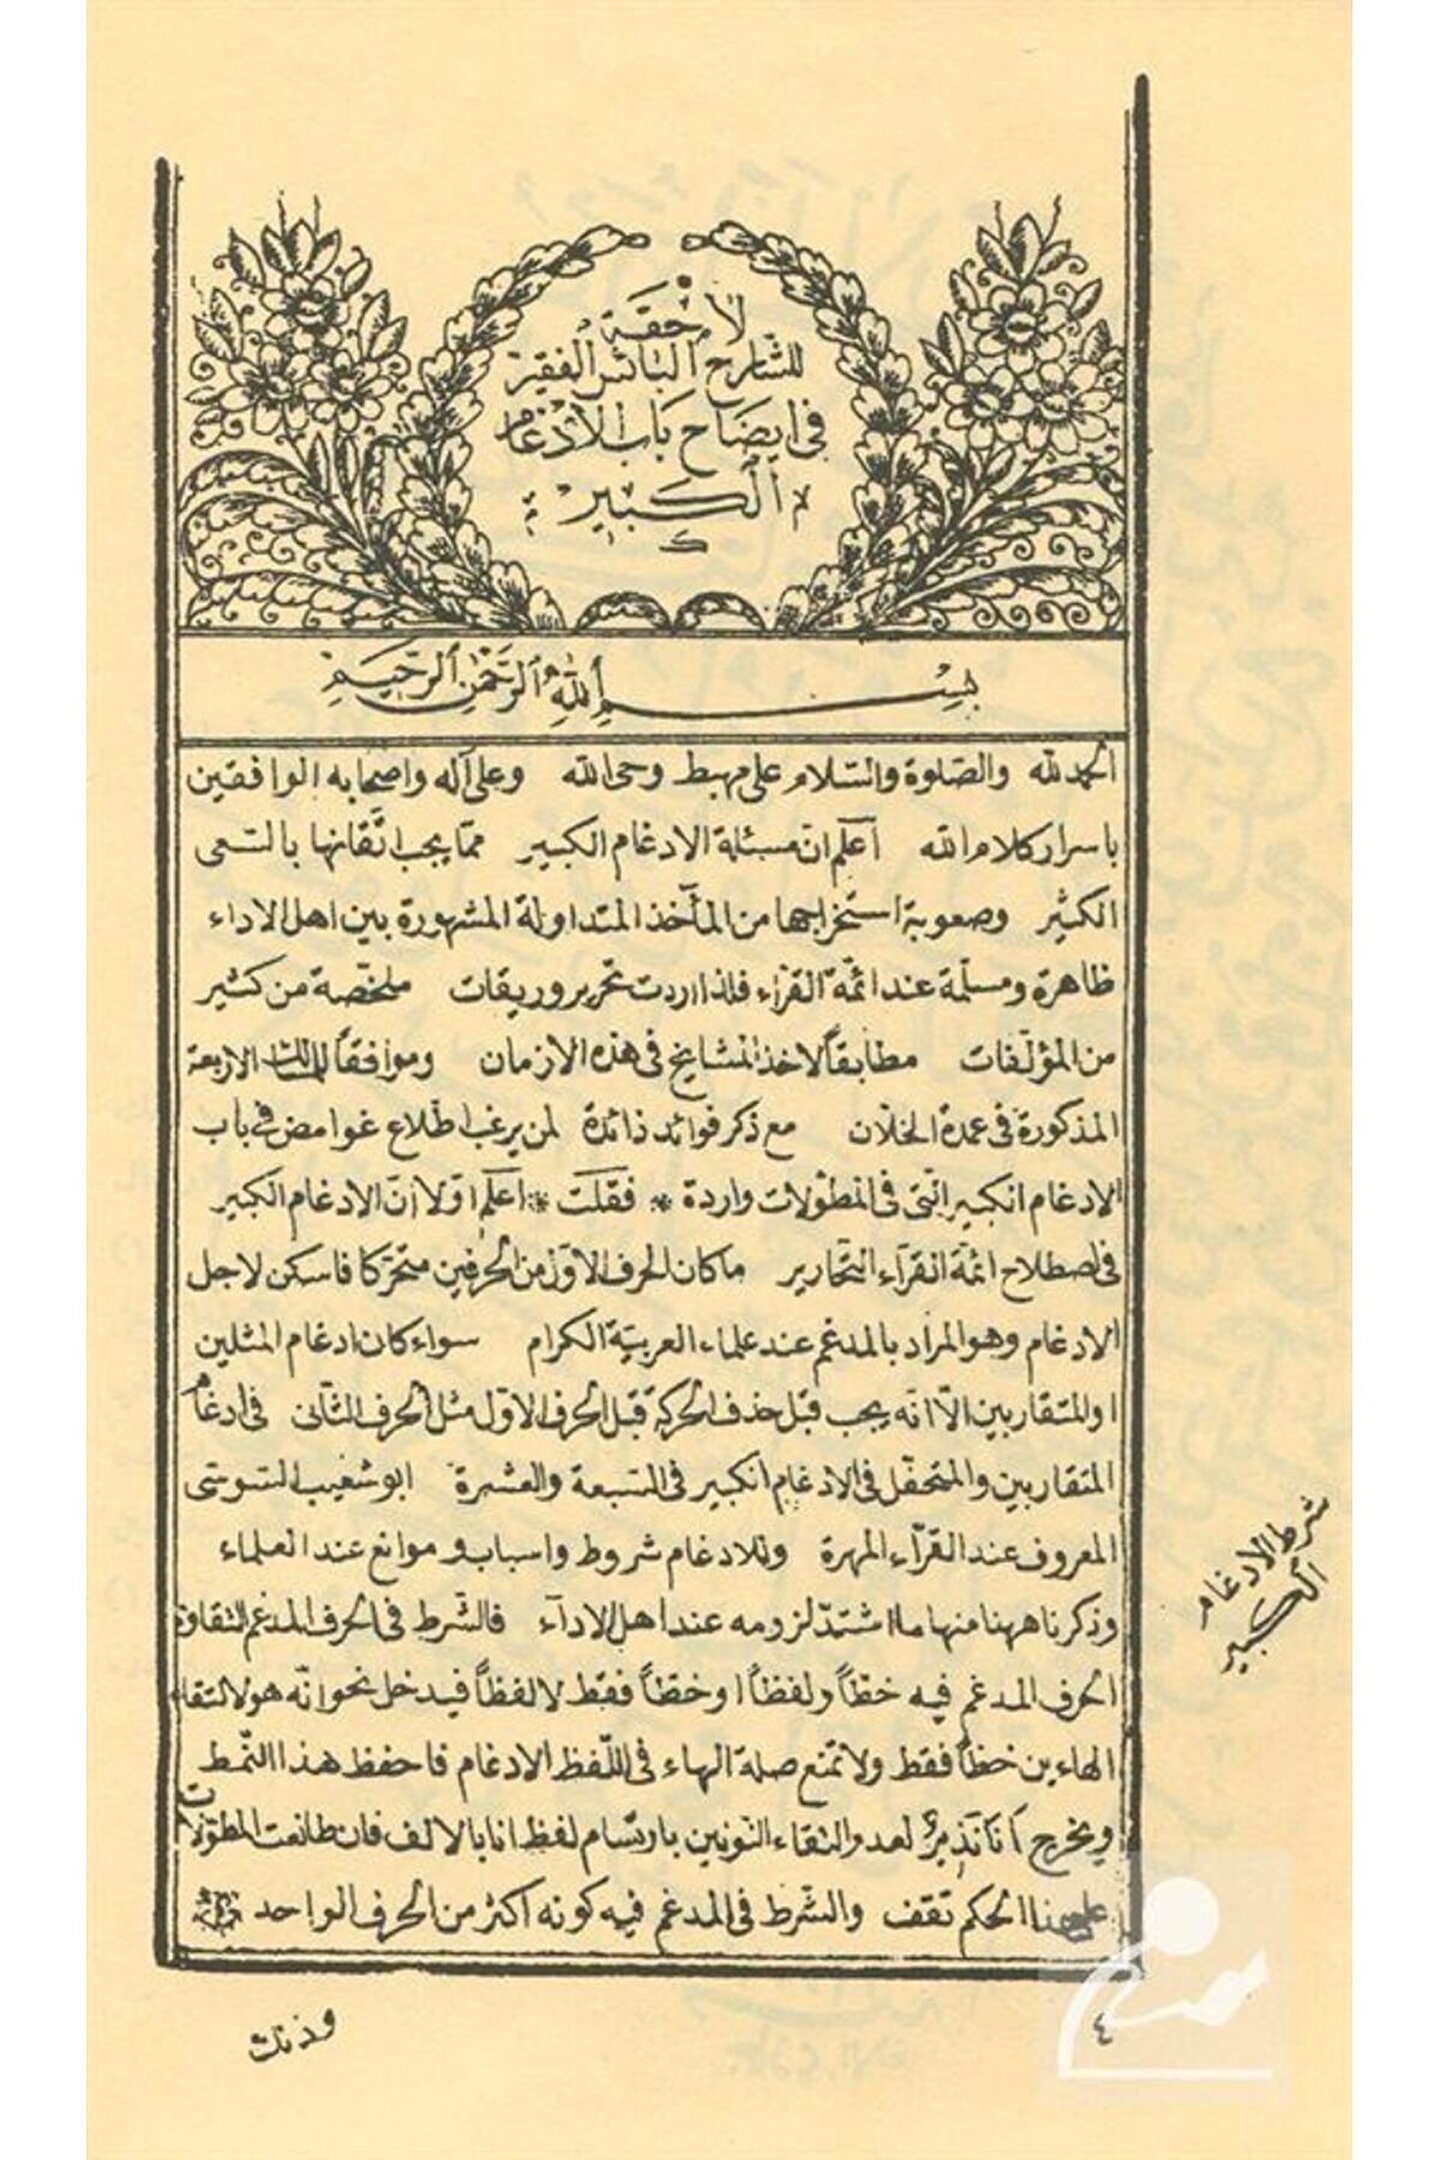 لاحقة
للشارح البائس الفقير
فى ايضاح باب الادغام
الكبير
بسم الله الرحمن الرحيم
الحمد لله والصلوة والسلام على مهبط وحى الله وعلى آله واصحابه الواقفين
باسرار كلام الله اعلم ان مسئلة الادغام الكبير مما يجب اتقانها بالسعى
الكثير وصعوبة استخراجها من المآخذ المتداولة المشهورة بين اهل الاداء
ظاهرة ومسلمة عند ائمة القراء فلذا اردت تحرير وريقات ملخصة من كثير
من المؤلفات مطابقاً لاخذ المشايخ فى هذه الازمان وموافقاً للمسالك الاربعة
المذكورة فى عمدة الخلان مع ذكر فوائد زائدة لمن يرغب اطلاع غوامض فى باب
الادغام الكبير التى فى المطولات واردة * فقلت * اعلم اولا ان الادغام الكبير
فى اصطلاح ائمة القراء النحارير ما كان الحرف الاول من الحرفين متحركا فاسكن لاجل
الادغام وهو المراد بالمدغم عند علماء العربية الكرام سواء كان ادغام المثلين
او المتقاربين الا انه يجب قبل حذف الحركة قلب الحرف الاول مثل الحرف الثانى فى ادغام
المتقاربين والمتحفل فى الادغام الكبير فى السبعة والعشرة ابو شعيب السوسى
المعروف عند القراء المهرة وللادغام شروط واسباب وموانع عند العلماء
وذكرنا ههنا منها ما اشتد لزومه عند اهل الاداء فالشرط فى الحرف المدغم التقاؤه
الحرف المدغم فيه خطاً ولفظاً او خطاً فقط لا لفظاً فيدخل نحو انه هو لالتقاء
الهاءين خطاً فقط ولا تمنع صلة الهاء فى اللفظ الادغام فاحفظ هذا النمط
ويخرج اَنَا نَذِيرٌ لعدم التقاء النونين بارتسام لفظ انا بالالف فان طالعت المطولات
على هذا الحكم تقف والشرط فى المدغم فيه كونه اكثر من الحرف الواحد
شرط الادغام
الكبير
وذلك
٤